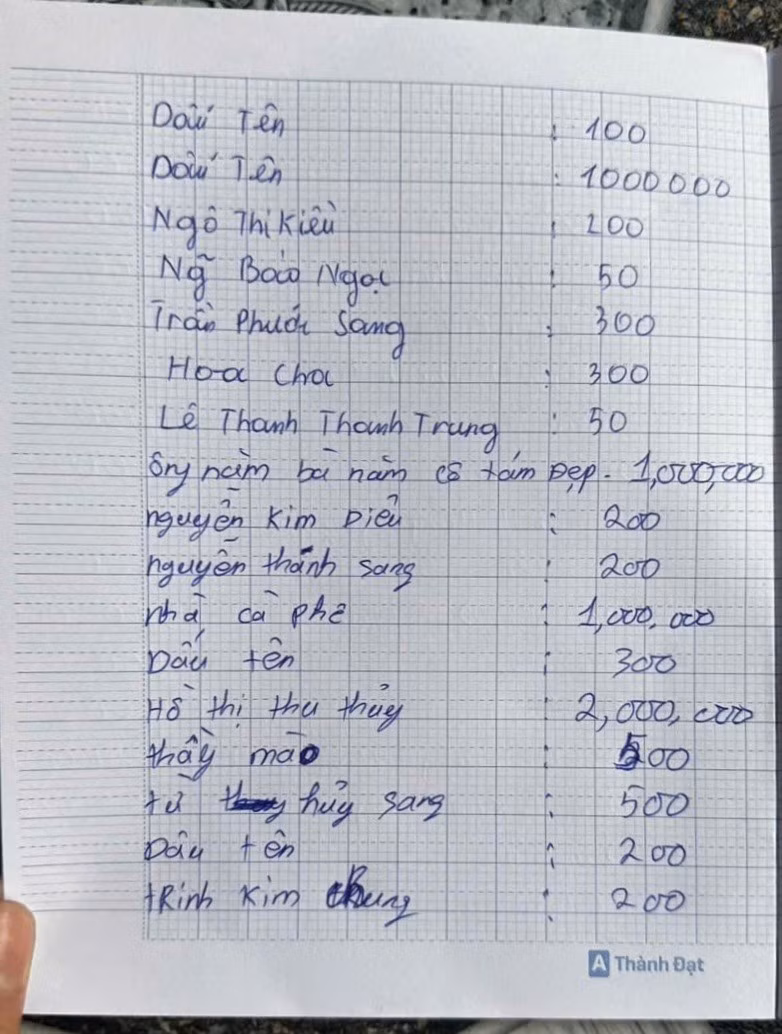 Dấu Tên : 100
Dấu Tên : 1000000
Ngô Thị Kiều : 200
Ng Bảo Ngọc : 50
Trần Phước Sang : 300
Hoa Cha : 300
Lê Thanh Thanh Trung : 50
ông năm bà năm cô tám Đẹp. 1,000,000
nguyễn Kim Diểu : 200
nguyễn thánh sang : 200
nhà cà phê : 1,000,000
Dấu tên : 300
Hồ thị thu thủy : 2,000,000
thầy mão : 500
từ hủy sang : 500
Dấu tên : 200
tRinh Kim chung : 200
A Thành Đạt